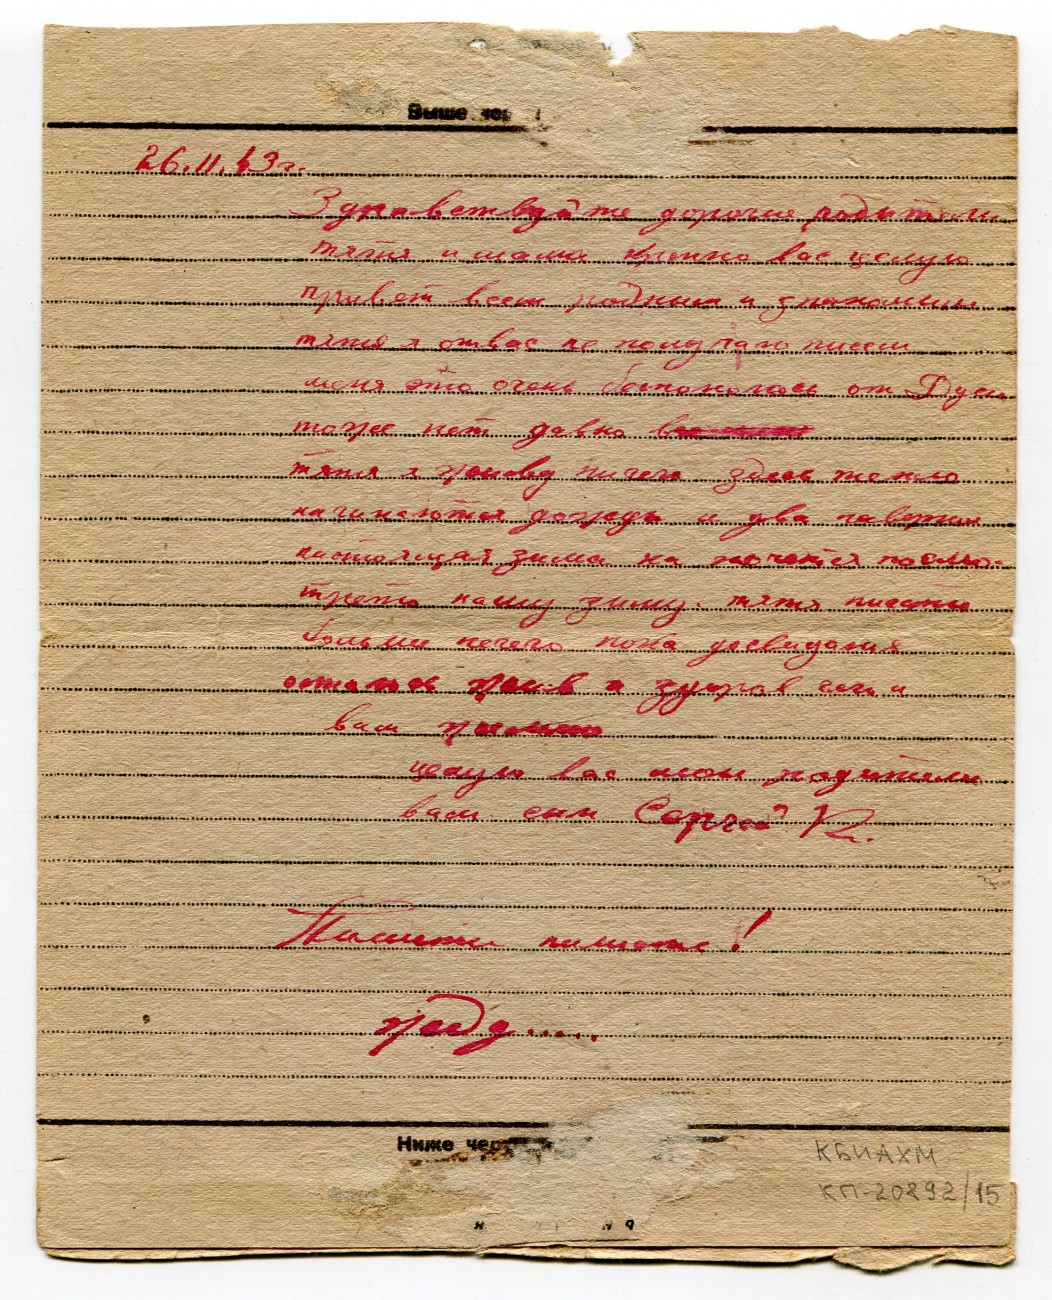 Выше чер
26.11.43 г.
Здравствуйте дорогие родители
тятя и мама крепко вас целую
привет всем родным и знакомым
тятя я от вас не получаю писем
меня это очень беспокоюсь от Дуси
тоже нет давно
тятя я живу ничего здесь тепло
начинаются дожди и два
настоящая зима на хочется посмо-
треть нашу зиму. тятя писать
больше нечего пока досвидания
остаюсь жив и здоров
вам желаю
целую вас мои родители
ваш сын Сергей К.
Пишите пишите!
жду.....
Ниже чер
КБИАХМ
КП-20892/15